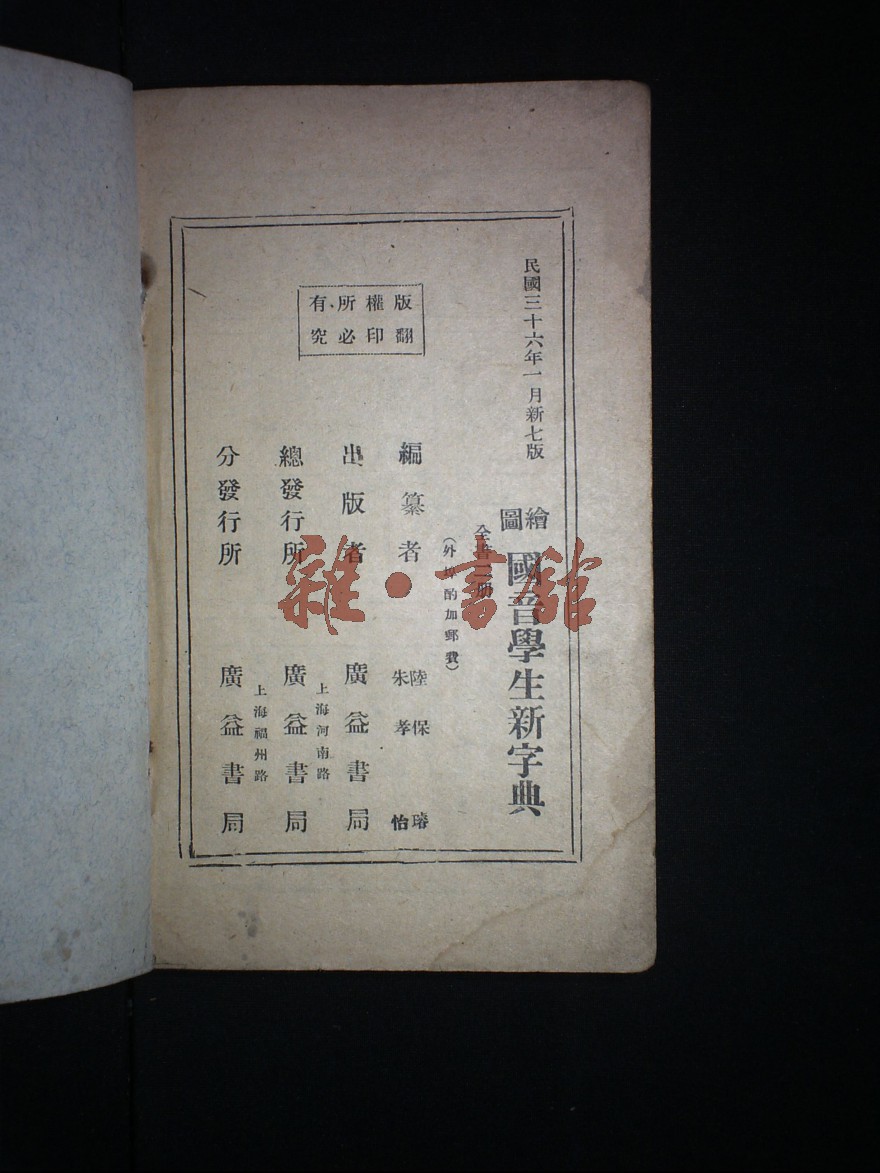 民國三十六年一月新七版
繪圖 國音學生新字典
全書一册
（外埠酌加郵費）
版權所有
翻印必究
編纂者 陸保璿 朱孝怡
出版者 廣益書局
上海河南路
總發行所 廣益書局
上海福州路
分發行所 廣益書局
雜·書舘